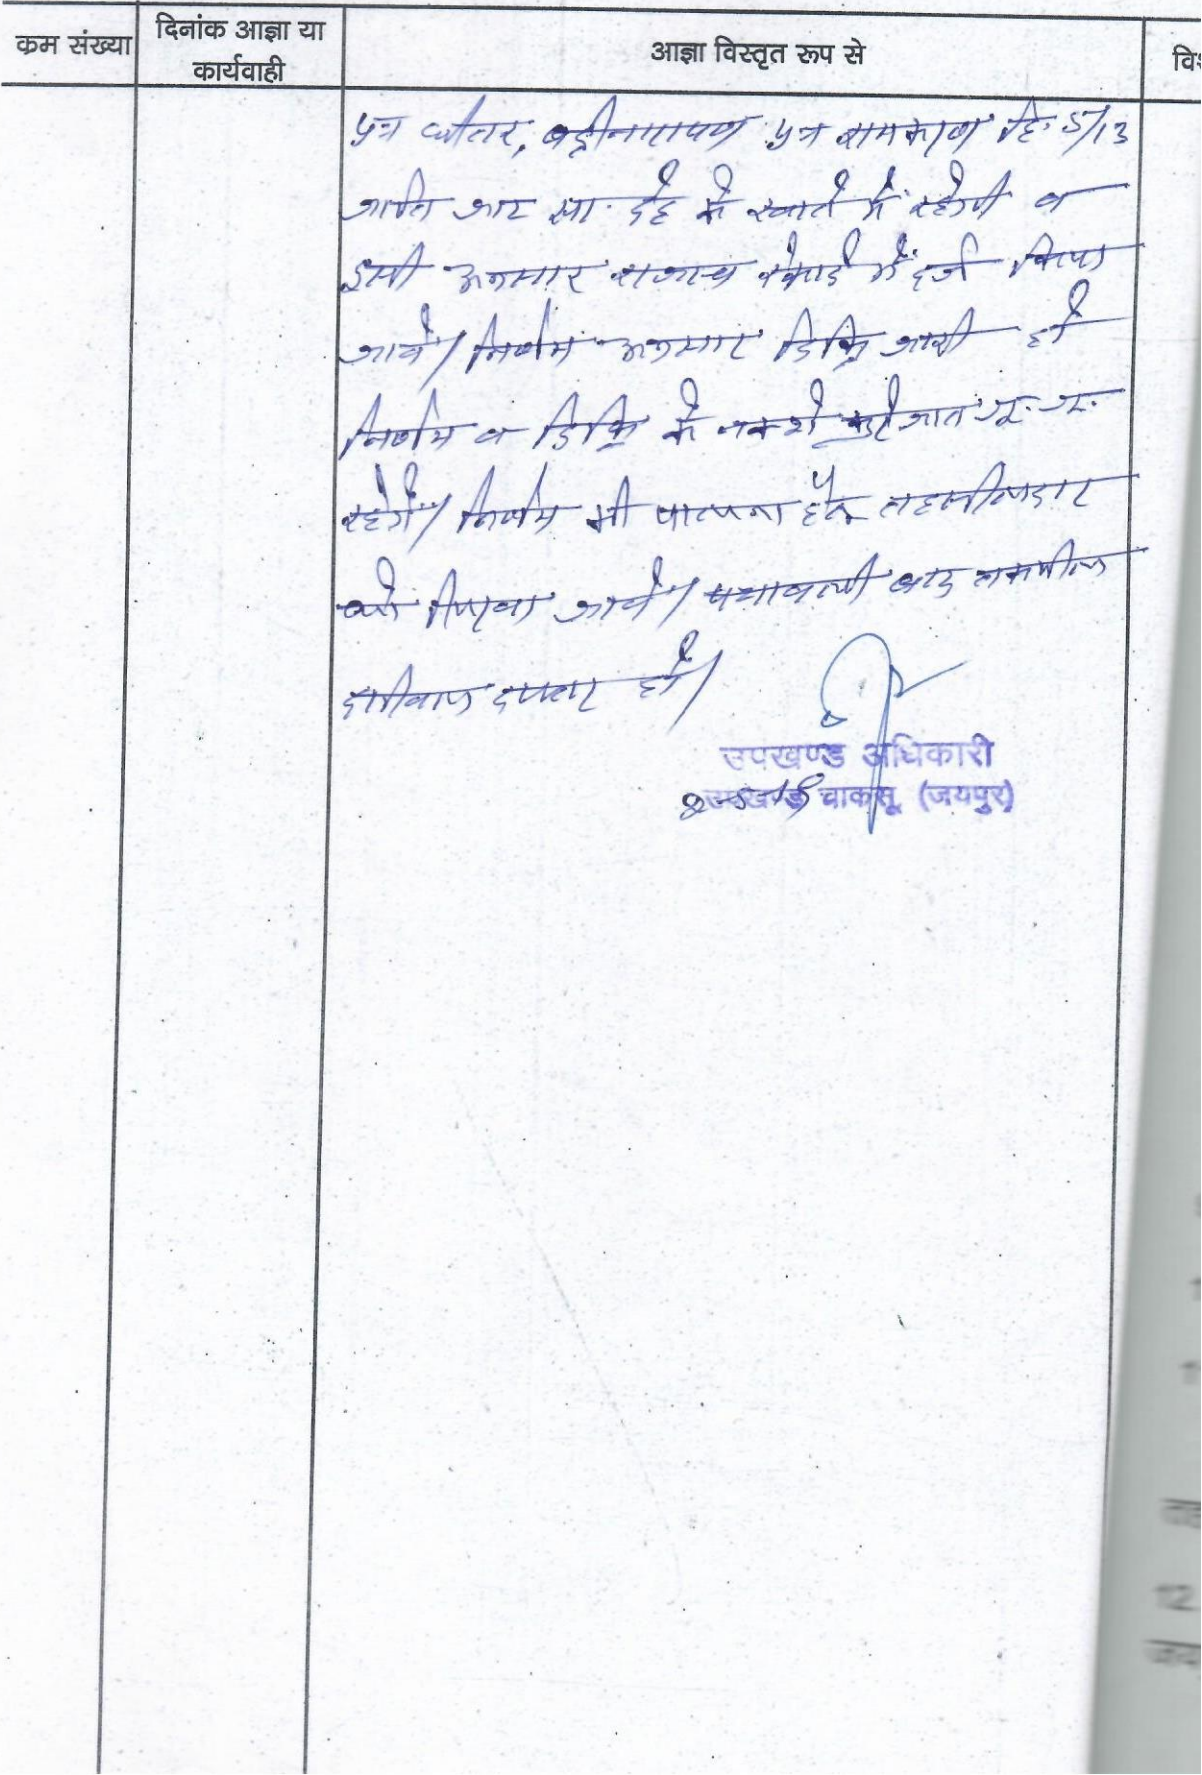 क्रम संख्या
दिनांक आज्ञा या
कार्यवाही
आज्ञा विस्तृत रूप से
पुत्र छीतर, बद्रीनारायण पुत्र रामकरण हि. 5/13
जाति जाट सा. देह के खाते में रहेगी व
इसी अनुसार राजस्व रेकार्ड में दर्ज किया
जावे/ निर्णय अनुसार डिक्रि जारी हो
निर्णय व डिक्रि के नक्शे कुरेजात
रहेगें/ निर्णय की पालना हेतु तहसीलदार
को लिखा जावे/ पत्रावली बाद तकमील
दाखिल दफ्तर हो/
उपखण्ड अधिकारी
उपखण्ड चाकसू (जयपुर)
12